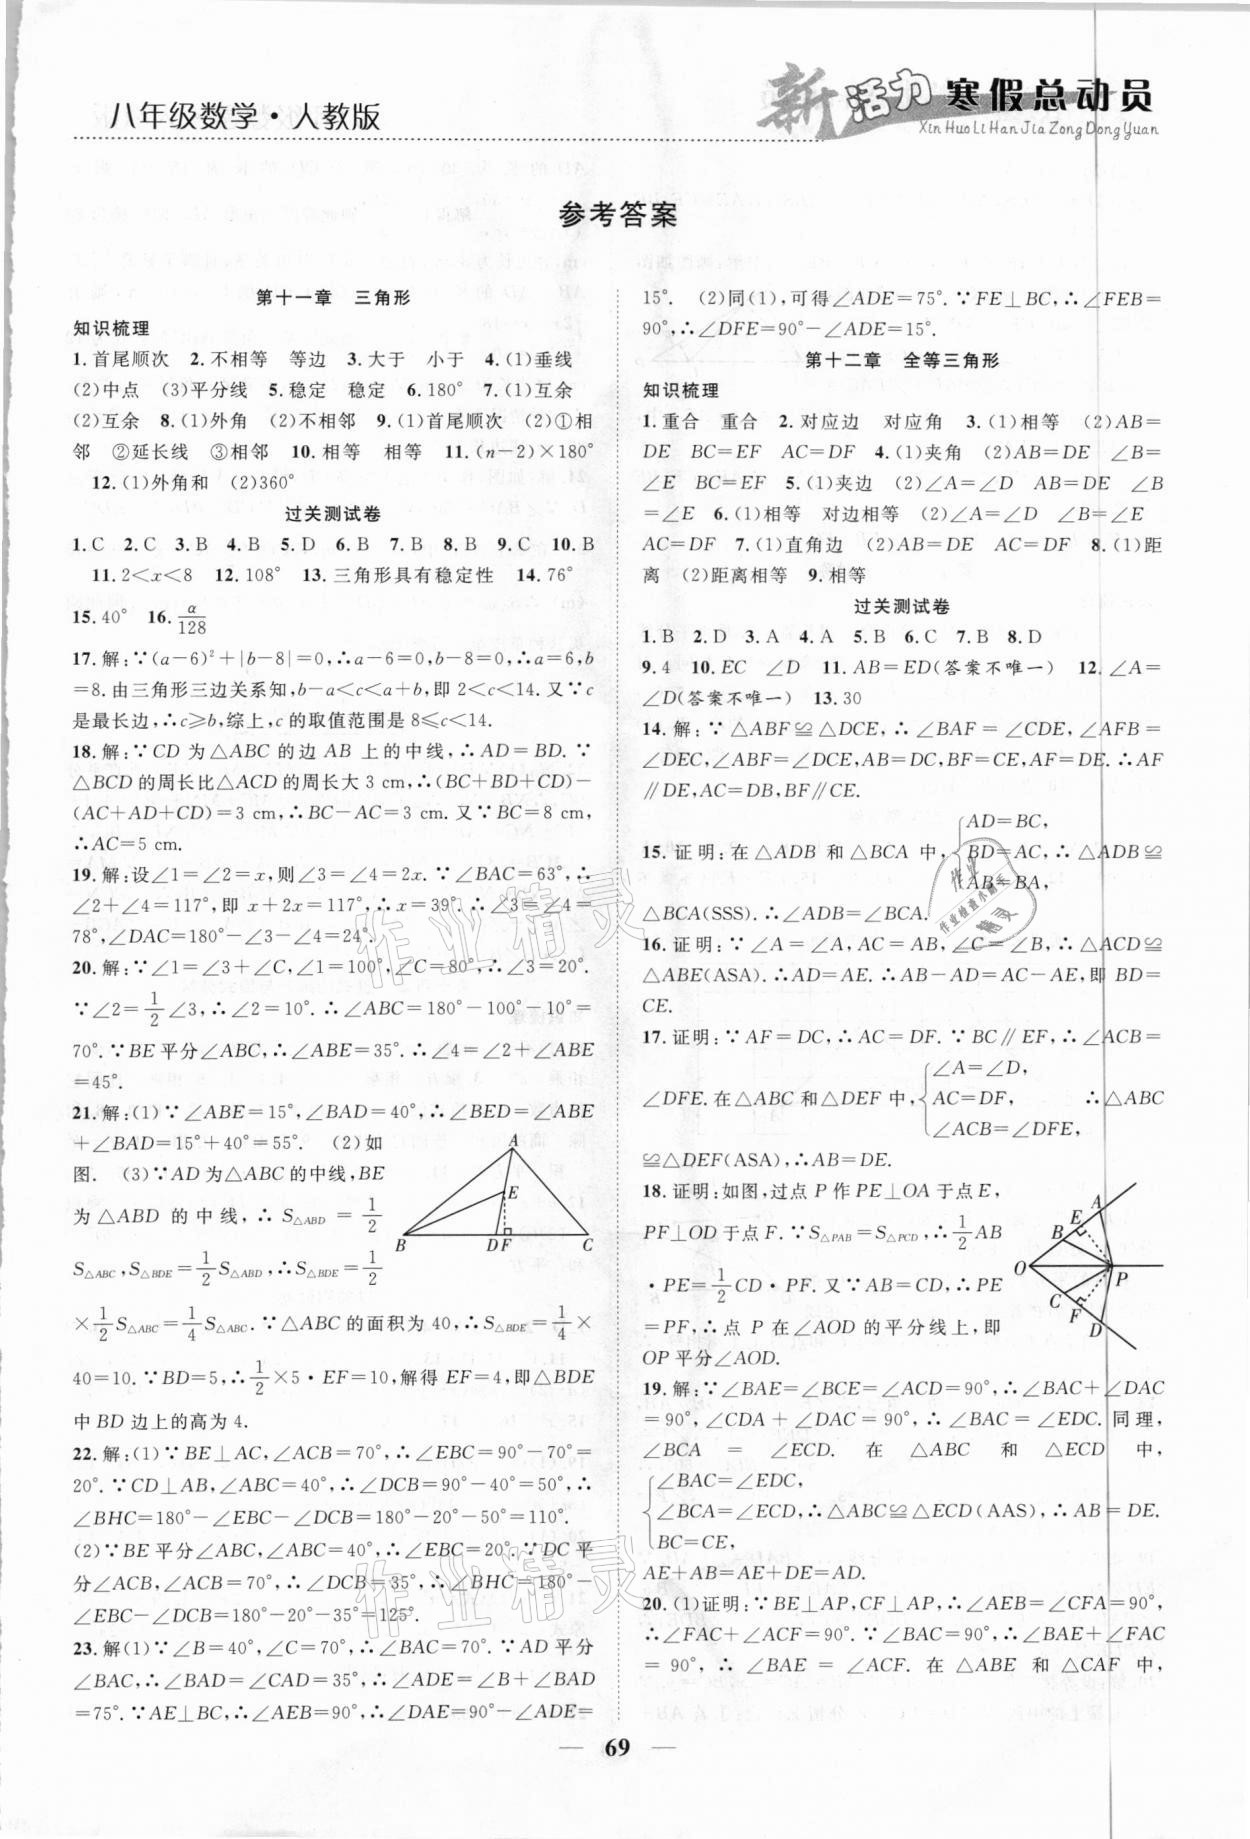 八年级数学·人教版
新活力寒假总动员
Xin Huo Li Han Jia Zong Dong Yuan
参考答案
第十一章　三角形
知识梳理
1.首尾顺次　2.不相等　等边　3.大于　小于　4.(1)垂线
(2)中点　(3)平分线　5.稳定　稳定　6.180°　7.(1)互余
(2)互余　8.(1)外角　(2)不相邻　9.(1)首尾顺次　(2)①相
邻　②延长线　③相邻　10.相等　相等　11.(n-2)×180°
12.(1)外角和　(2)360°
过关测试卷
1.C　2.C　3.B　4.B　5.D　6.B　7.B　8.B　9.C　10.B
11.2<x<8　12.108°　13.三角形具有稳定性　14.76°
15.40°　16.α/128
17.解:∵(a-6)²+|b-8|=0,∴a-6=0,b-8=0,∴a=6,b
=8.由三角形三边关系知,b-a<c<a+b,即 2<c<14.又∵c
是最长边,∴c≥b,综上,c的取值范围是 8≤c<14.
18.解:∵CD 为△ABC 的边 AB 上的中线,∴AD=BD. ∵
△BCD 的周长比△ACD 的周长大 3 cm,∴(BC+BD+CD)-
(AC+AD+CD)=3 cm,∴BC-AC=3 cm. 又∵BC=8 cm,
∴AC=5 cm.
19.解:设∠1=∠2=x,则∠3=∠4=2x. ∵∠BAC=63°,∴
∠2+∠4=117°,即 x+2x=117°,∴x=39°.∴∠3=∠4=
78°,∠DAC=180°-∠3-∠4=24°.
20.解:∵∠1=∠3+∠C,∠1=100°,∠C=80°,∴∠3=20°.
∵∠2=1/2∠3,∴∠2=10°.∴∠ABC=180°-100°-10°=
70°.∵BE平分∠ABC,∴∠ABE=35°.∴∠4=∠2+∠ABE
=45°.
21.解:(1)∵∠ABE=15°,∠BAD=40°,∴∠BED=∠ABE
+∠BAD=15°+40°=55°.　(2)如
图.　(3)∵AD为△ABC的中线,BE
为△ABD 的中线,∴S△ABD=1/2
S△ABC,S△BDE=1/2S△ABD,∴S△BDE=1/2
×1/2S△ABC=1/4S△ABC.∵△ABC 的面积为 40,∴S△BDE=1/4×
40=10.∵BD=5,∴1/2×5·EF=10,解得 EF=4,即△BDE
中BD边上的高为 4.
A
E
B
D F
C
22.解:(1)∵BE⊥AC,∠ACB=70°,∴∠EBC=90°-70°=
20°.∵CD⊥AB,∠ABC=40°,∴∠DCB=90°-40°=50°,∴
∠BHC=180°-∠EBC-∠DCB=180°-20°-50°=110°.
(2)∵BE平分∠ABC,∠ABC=40°,∴∠EBC=20°.∵DC 平
分∠ACB,∠ACB=70°,∴∠DCB=35°,∴∠BHC=180°-
∠EBC-∠DCB=180°-20°-35°=125°.
23.解(1)∵∠B=40°,∠C=70°,∴∠BAC=70°.∵AD 平分
∠BAC,∴∠BAD=∠CAD=35°,∴∠ADE=∠B+∠BAD
=75°.∵AE⊥BC,∴∠AEB=90°,∴∠DAE=90°-∠ADE=
15°.　(2)同(1),可得∠ADE=75°.∵FE⊥BC,∴∠FEB=
90°,∴∠DFE=90°-∠ADE=15°.
第十二章　全等三角形
知识梳理
1.重合　重合　2.对应边　对应角　3.(1)相等　(2)AB=
DE　BC=EF　AC=DF　4.(1)夹角　(2)AB=DE　∠B=
∠E　BC=EF　5.(1)夹边　(2)∠A=∠D　AB=DE　∠B
=∠E　6.(1)相等　对边相等　(2)∠A=∠D　∠B=∠E
AC=DF　7.(1)直角边　(2)AB=DE　AC=DF　8.(1)距
离　(2)距离相等　9.相等
过关测试卷
1.B　2.D　3.A　4.A　5.B　6.C　7.B　8.D
9.4　10.EC　∠D　11.AB=ED(答案不唯一)　12.∠A=
∠D(答案不唯一)　13.30
14.解:∵△ABF≌△DCE,∴∠BAF=∠CDE,∠AFB=
∠DEC,∠ABF=∠DCE,AB=DC,BF=CE,AF=DE.∴AF
∥DE,AC=DB,BF∥CE.
AD=BC,
15.证明:在△ADB 和△BCA 中,BD=AC,∴△ADB≌
AB=BA,
△BCA(SSS).∴∠ADB=∠BCA.
16.证明:∵∠A=∠A,AC=AB,∠C=∠B,∴△ACD≌
△ABE(ASA).∴AD=AE.∴AB-AD=AC-AE,即 BD=
CE.
17.证明:∵AF=DC,∴AC=DF.∵BC∥EF,∴∠ACB=
∠A=∠D,
∠DFE.在△ABC和△DEF中,AC=DF,　∴△ABC
∠ACB=∠DFE,
≌△DEF(ASA),∴AB=DE.
18.证明:如图,过点 P 作 PE⊥OA 于点 E,
PF⊥OD于点F.∵S△PAB=S△PCD,∴1/2AB
·PE=1/2CD·PF.又∵AB=CD,∴PE
=PF,∴点 P 在∠AOD 的平分线上,即
OP平分∠AOD.
A
E
B
O
P
C
F
D
19.解:∵∠BAE=∠BCE=∠ACD=90°,∴∠BAC+∠DAC
=90°,∠CDA+∠DAC=90°,∴∠BAC=∠EDC.同理,
∠BCA=∠ECD. 在△ABC 和△ECD 中,
∠BAC=∠EDC,
∠BCA=∠ECD,∴△ABC≌△ECD(AAS),∴AB=DE.
BC=CE,
AE+AB=AE+DE=AD.
20.(1)证明:∵BE⊥AP,CF⊥AP,∴∠AEB=∠CFA=90°,
∴∠FAC+∠ACF=90°.∵∠BAC=90°,∴∠BAE+∠FAC
=90°,∴∠BAE=∠ACF. 在△ABE 和△CAF 中,
— 69 —
作业精灵
作业精灵